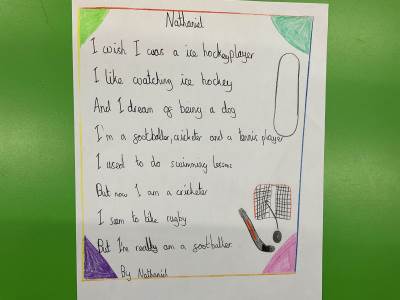 Nathaniel
I wish I was a ice hockey player
I like watching ice hockey
And I dream of being a dog
I'm a footballer, cricketer and a tennis player
I used to do swimming lessons
But now I am a cricketer
I seem to like rugby
But I'm really am a footballer.
By Nathaniel